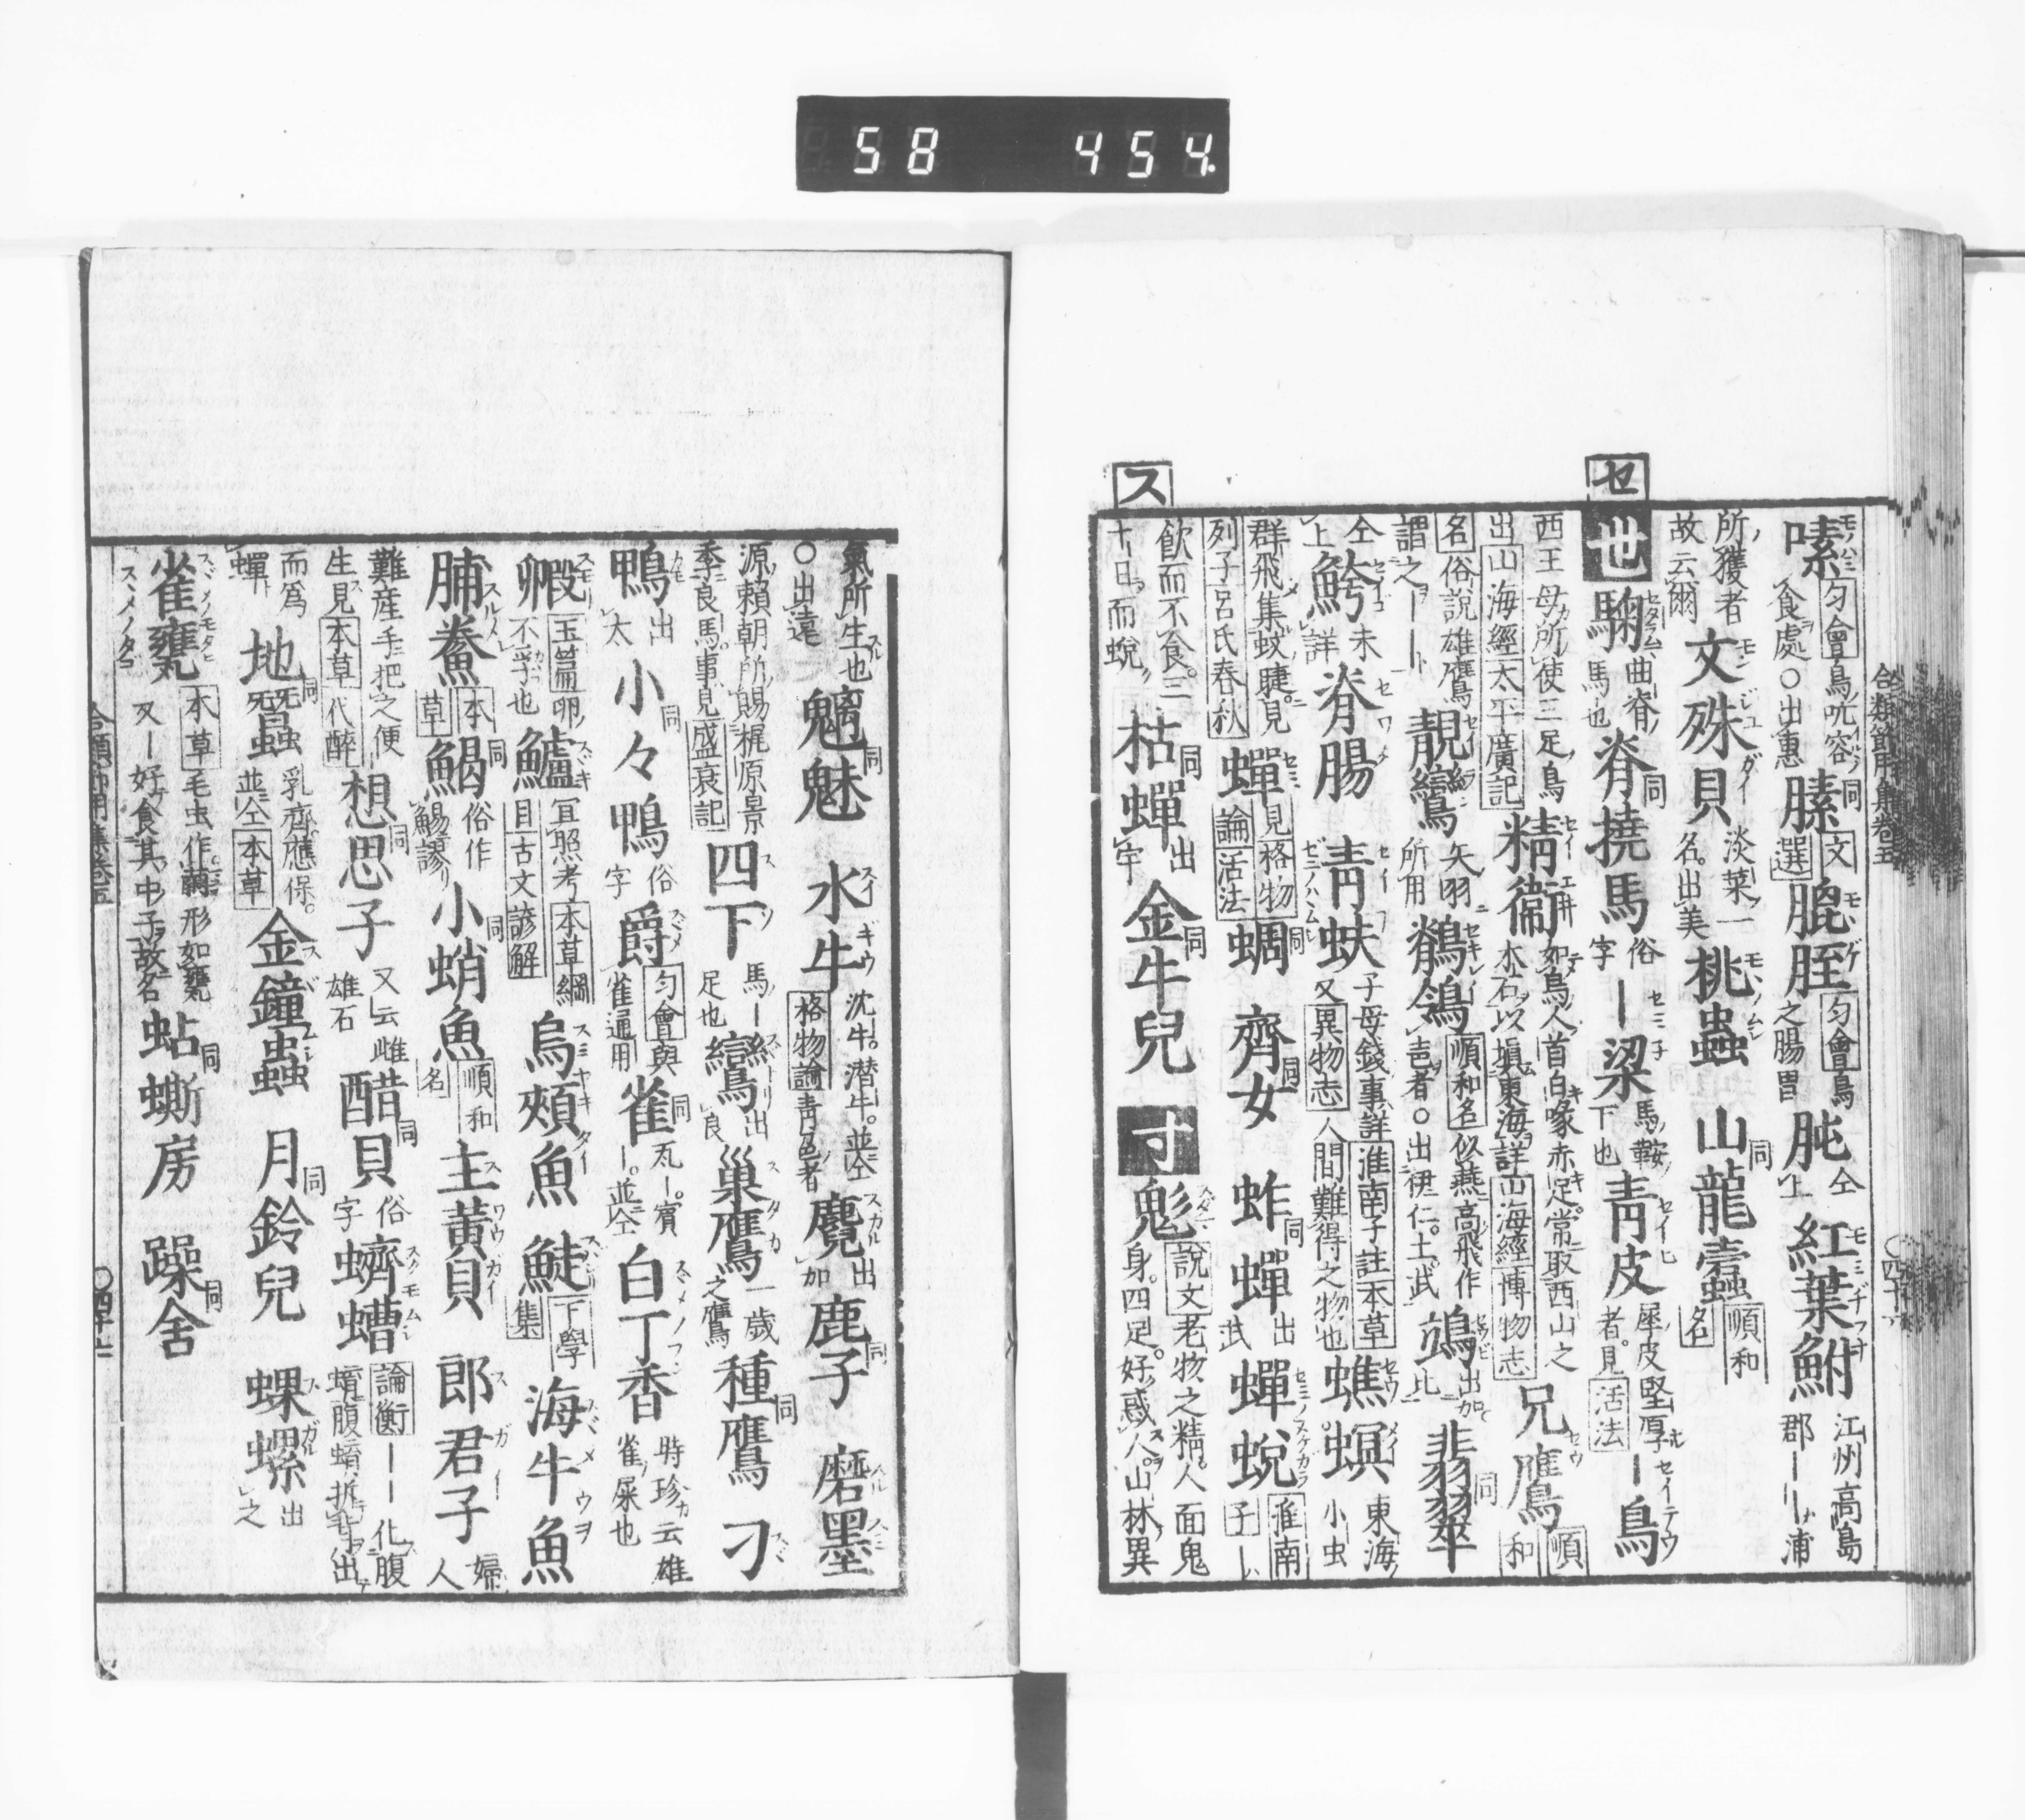 58 454
合類節用集卷五
〇四十六
嗉 匀會鳥吭容食處〇出惠 膆 同 文選 膍胵 匀會鳥之腸胃 肫 仝上 紅葉鮒 江州高島郡ーー浦
所獲者故云爾 文殊貝 淡菜一名出美 桃蟲 山龍蠹 同 順和名
セ
世 騊 曲脊馬也 脊撓馬 同 俗字 ー梁 馬鞍下也 青皮 犀皮堅厚者見活法 ー鳥
西王母所使三足鳥出山海經太平廣記 精衞 如鳥人首白喙赤足常取西山之木石以塡東海詳山海經博物志 兄鷹 順和
名俗説雄鷹謂之ーー 靚鸞 矢羽所用 鶺鴒 順和名似燕高飛作声者〇出伊仁土武 鴗 出加比 翡翠 同
仝上 鮬 未詳 脊腸 青蚨 子母錢事詳淮南子註本草又異物志人間難得之物也 蟭螟 東海小虫
群飛集蚊睫見列子呂氏春秋 蟬 見格物論活法 蜩 同 齊女 同 蚱蟬 同 出武 蟬蛻 淮南子
飲而不食三十日而蛻 枯蟬 同 出字 金牛兒 同
ス
寸 魑 説文老物之精人面鬼身四足好惑人山林異
氣所生也〇出遠 魑魅 同 水牛 沈牛潜牛並仝格物論青色者 麑 出加 鹿子 同 磨墨
源賴朝所賜梶原景季良馬事見盛衰記 四下 馬ー足也 鸞 出良 巢鷹 一歲之鷹 種鷹 同 刁
鴨 出太 小々鴨 同 俗字 爵 匀會與雀通用 雀 同 瓦ー賓ー並仝 白丁香 時珍云雄雀屎也
毈 玉篇卵不孚也 鱸 冝照考本草綱目古文諺解 烏頰魚 鯐 下學集 海牛魚
脯鮝 本草 鰑 同 俗作鯣謬 小蛸魚 同 順和名 主黃貝 郎君子 婦人
難産手把之便生見本草代醉 想思子 同 又云雌雄石 醋貝 同 俗字 蠐螬 論衡ーー化腹蜟腹蜟拆背出
而爲蟬 地蠶 同 乳齊應保並仝本草 金鐘蟲 月鈴兒 同 蜾螺 出之
雀甕 本草毛虫作繭形如甕又ー好食其中子故名 蛅蟖房 同 躁舍 同
合類節用集卷五
〇四十七